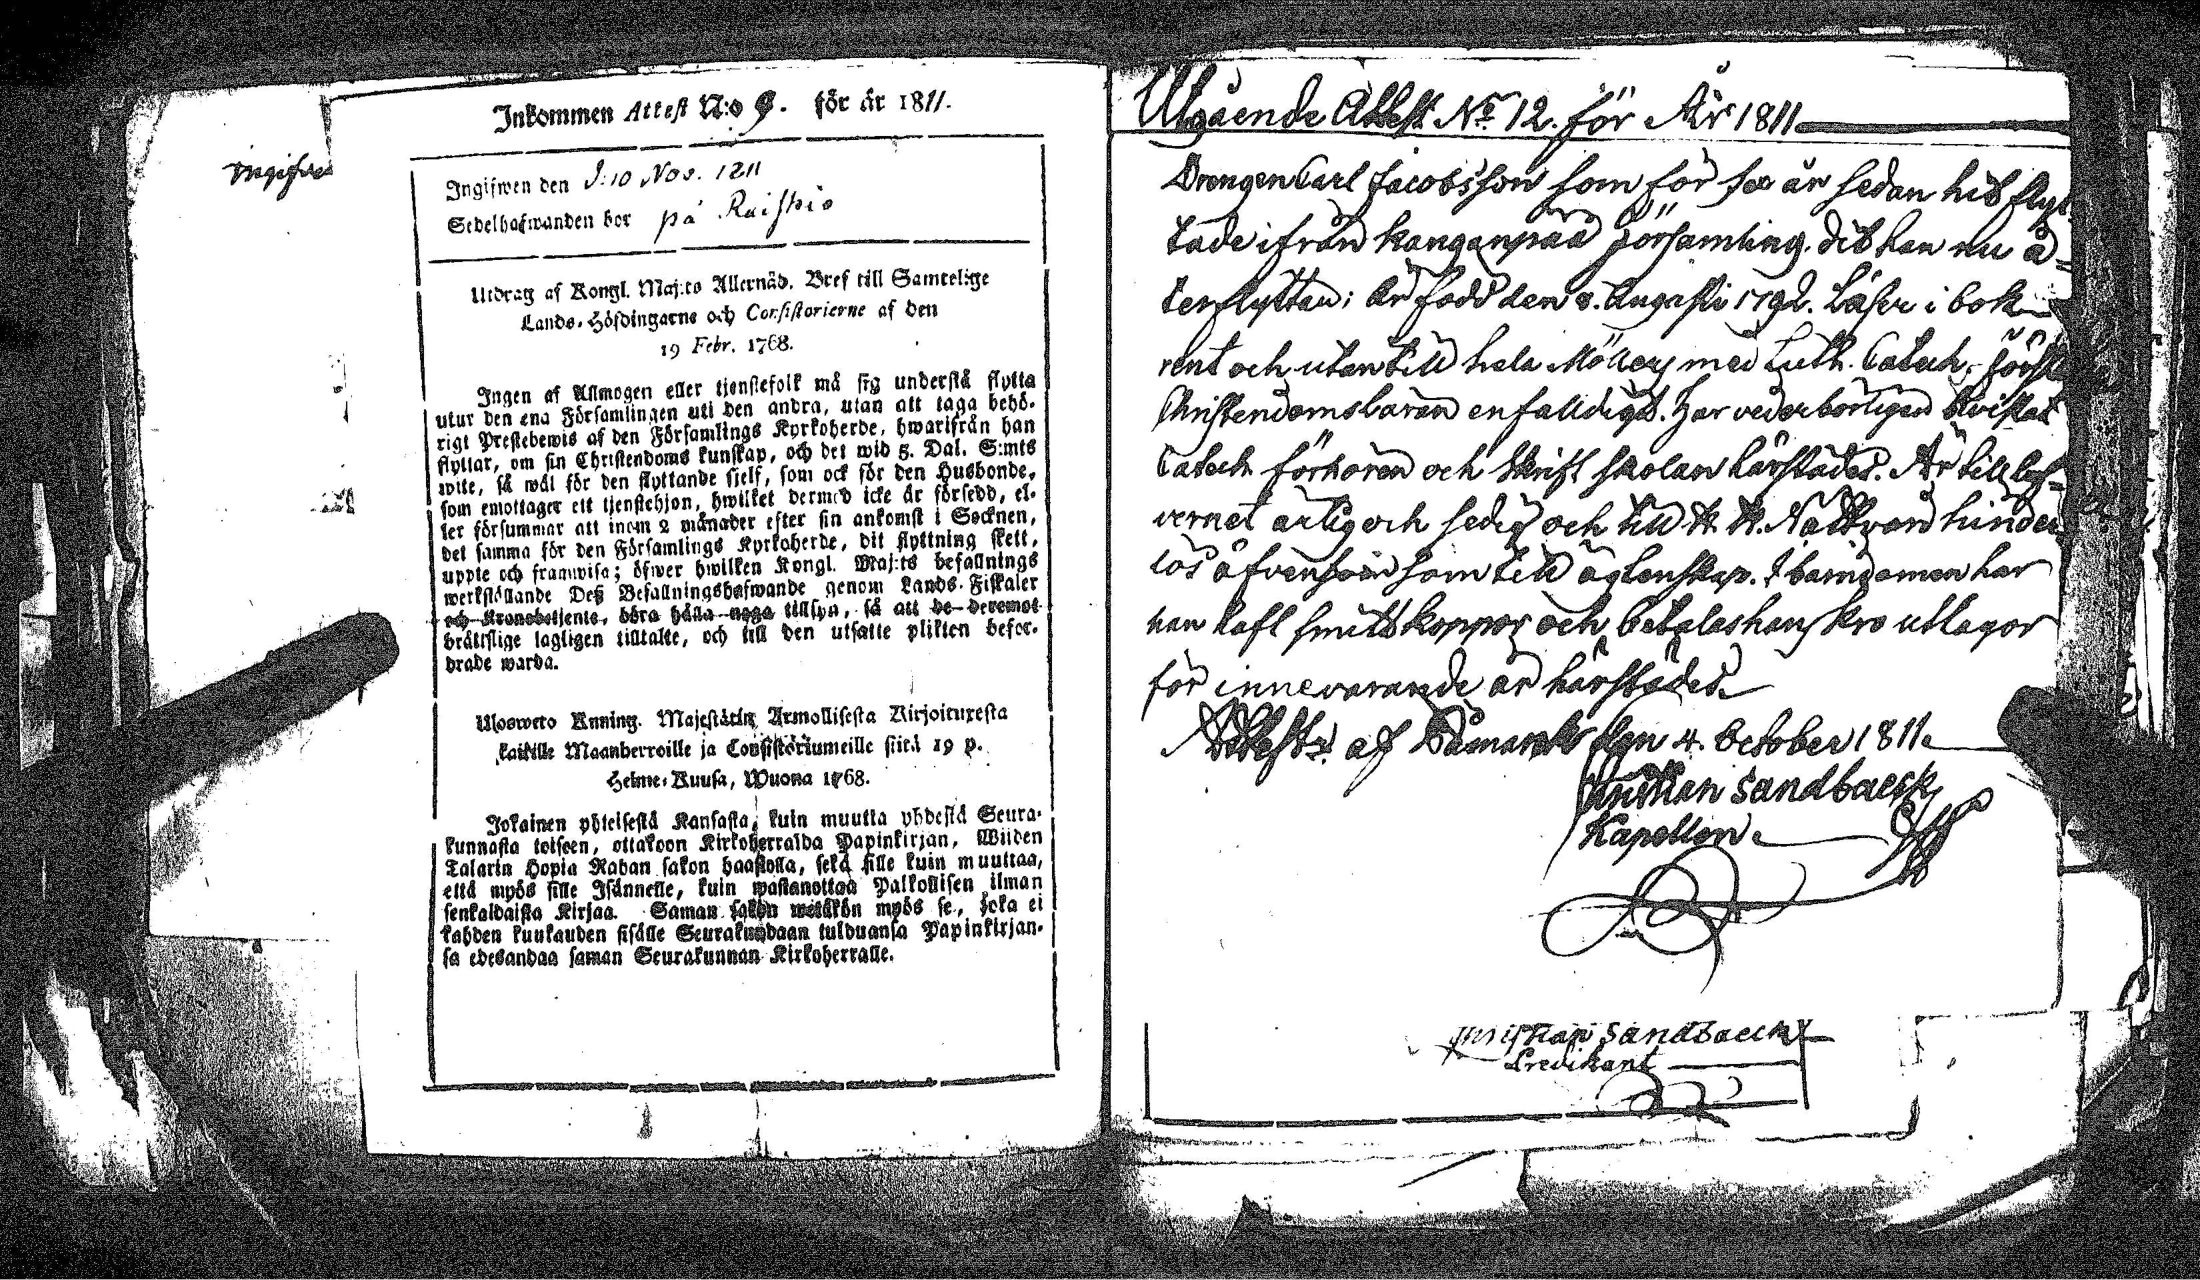 Inkommen Attest N:o 9. för år 1811.
Ingifwen den d: 10 Nov. 1811
Sedelhafwanden bor på Raiskio
Utdrag af Kongl. Maj:ts Allernåd. Bref till Samtelige
Lands-Höfdingarne och Consistorierne af den
19 Febr. 1768.
Ingen af Allmogen eller tjenstefolk må sig understå flytta
utur den ena Församlingen uti den andra, utan att taga behö-
rigt Prestebewis af den Församlings Kyrkoherde, hwarifrån han
flyttar, om sin Christendoms kunskap, och det wid 5. Dal. S:mts
wite, så wäl för den flyttande sielf, som ock för den Husbonde,
som emottager ett tjenstehjon, hwilket dermed icke är försedd, el-
ler försummar att inom 2 månader efter sin ankomst i Socknen,
det samma för den Församlings Kyrkoherde, dit flyttning skett,
uppte och framwisa; öfwer hwilken Kongl. Maj:ts befallnings
werkställande Deß Befallningshafwande genom Lands-Fiskaler
och Kronobetjente, böra hålla noga tillsyn, så att de deremot
brättslige lagligen tilltalte, och till den utsatte plikten befor-
drade warda.
Ulosweto Kuning. Majestätin Armollisesta Kirjoituxesta
kaikille Maanherroille ja Consistoriumeille siitä 19 p.
Helme-Kuusa, Wuona 1768.
Jokainen yhteisestä Kansasta, kuin muutta yhdestä Seura-
kunnasta toiseen, ottakoon Kirkoherralda Papinkirjan, Wiiden
Talarin Hopia Rahan sakon haastolla, sekä sille kuin muuttaa,
että myös sille Isännelle, kuin wastanottaa Palkollisen ilman
senkaldaista Kirjaa. Saman sakon wetäkön myös se, joka ei
kahden kuukauden sisälle Seurakundaan tulduansa Papinkirjan-
sa edesandaa saman Seurakunnan Kirkoherralle.
Utgående Attest No 12. för År 1811
Drengen Carl Jacobsson som för sex år sedan hit flyt-
tade ifrån Kanganpää Församling, dit han nu å-
terflyttar; är född den 8. Augusti 1792. Läser i bok
rent och utantill hela Möllers med Luth. Catech. förstår
Christendomsläran enfaldigt. Har vederbörligen bevistat
Catech. förhören och skrift skolan härstädes. Är till lef-
vernet ärlig och sedig och till H. H. Nattvard hinder-
lös äfvensom till äglenskap. I barndomen har
han haft smittkoppor och betalas hans kro utlagor
för innevarande år härstädes.
Attest. af Påmark den 4. October 1811.
Christian Sandbaeck
Kapellan
Christian Sandbaeck
Predikant